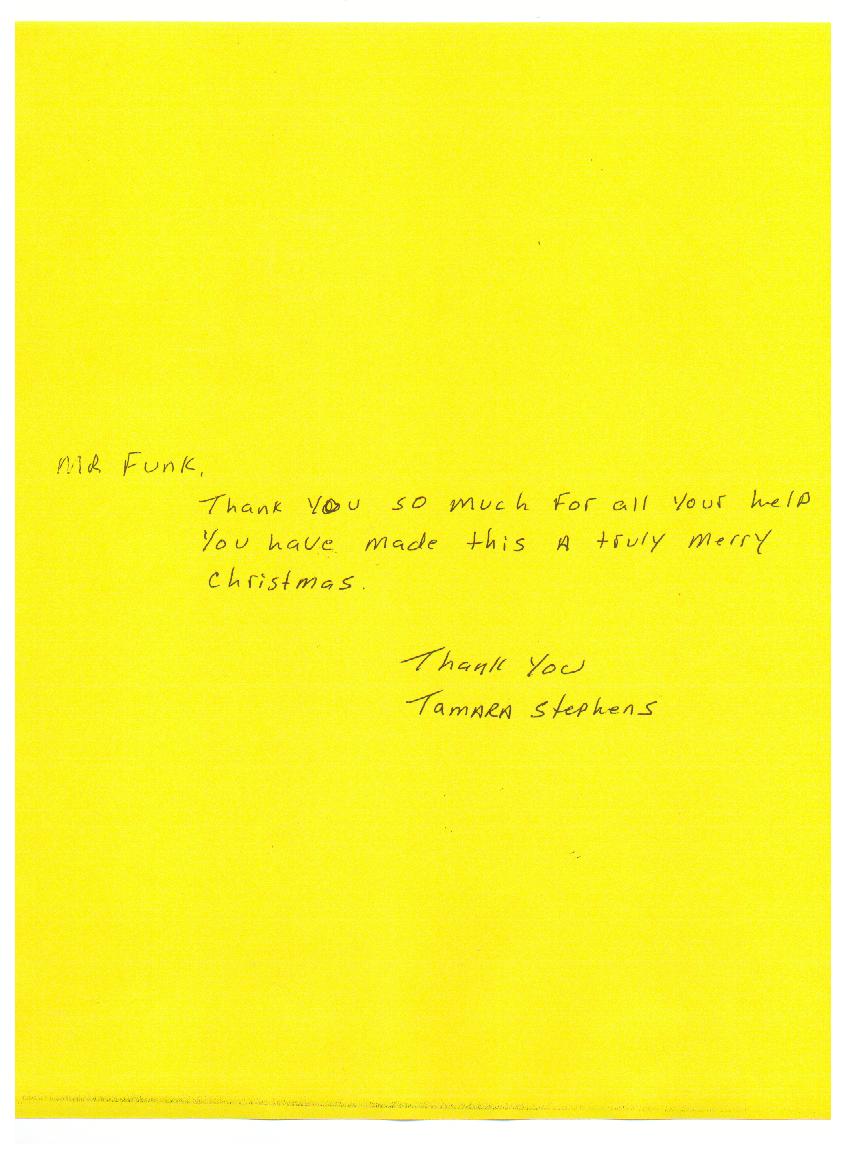 Mr Funk,
Thank you so much for all your help
You have made this A truly merry
Christmas.
Thank You
Tamara Stephens